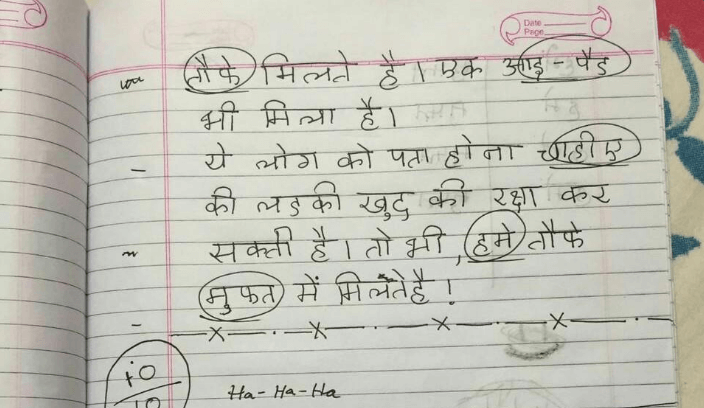 Date
Page
तौफे मिलते है। एक आइ-पैड
भी मिला है।
ये लोग को पता होना चाहीए
की लडकी खुद की रक्षा कर
सकती है। तो भी, हमे तौफे
मुफत में मिलतेहै!
10
10
Ha-Ha-Ha